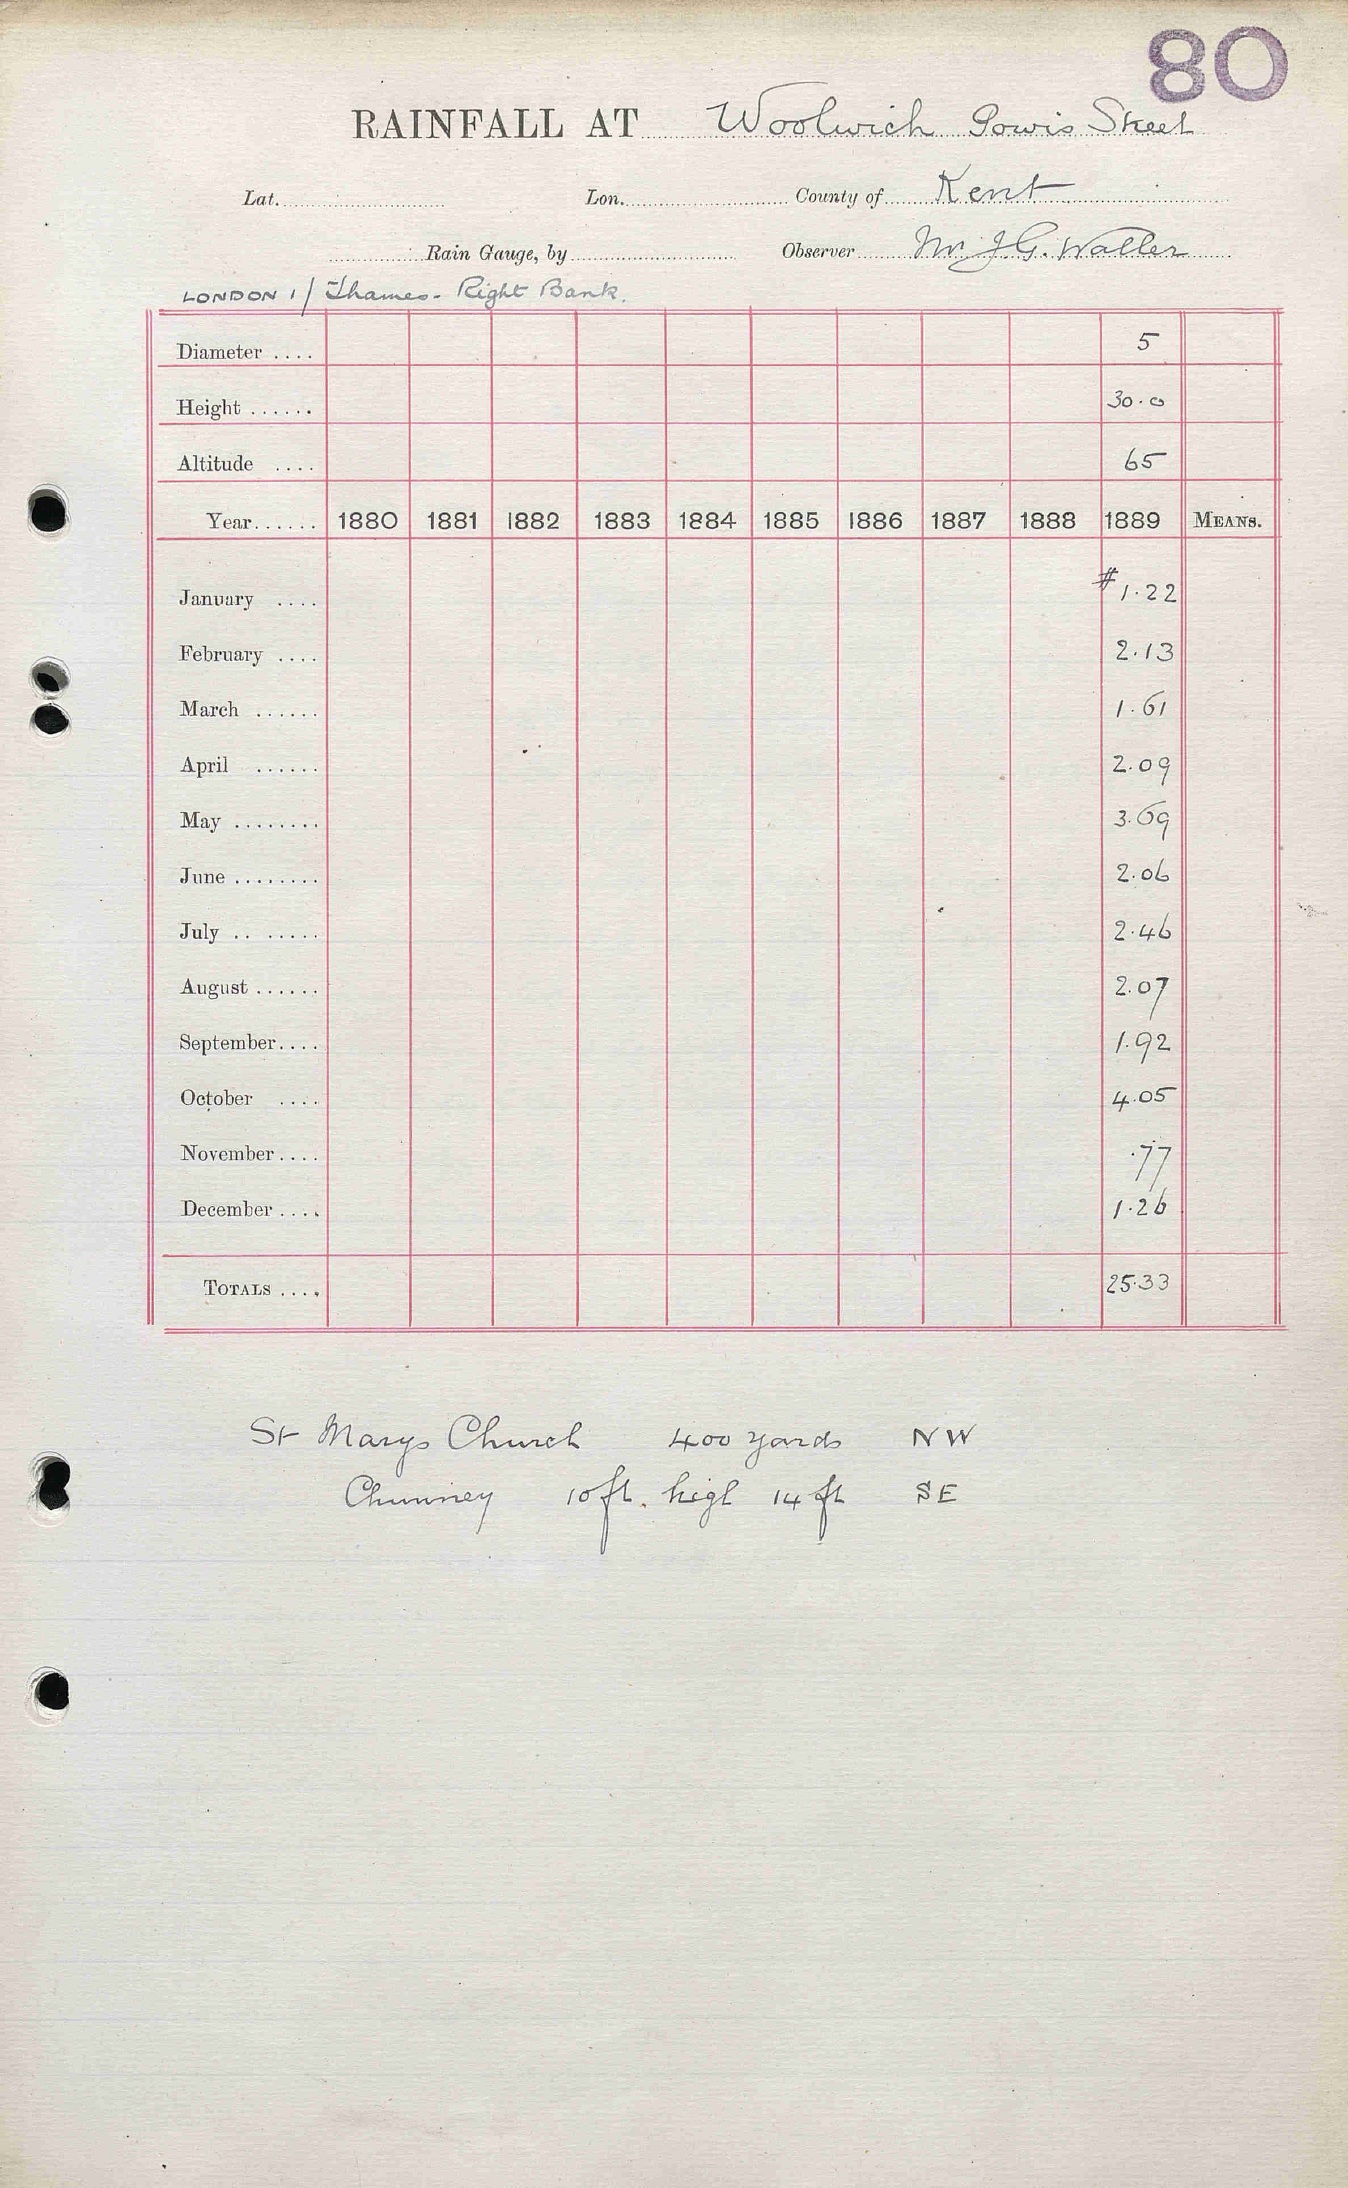 80
RAINFALL AT Woolwich Powis Street
Lat. Lon. County of Kent
Rain Gauge, by Observer Mr. J. G. Waller
LONDON 1/ Thames - Right Bank.
Diameter .... 5
Height ...... 30.0
Altitude .... 65
Year...... 1880 1881 1882 1883 1884 1885 1886 1887 1888 1889 MEANS.
January .... # 1.22
February .... 2.13
March ...... 1.61
April ...... 2.09
May ........ 3.69
June ........ 2.06
July .. ..... 2.46
August ...... 2.07
September.... 1.92
October .... 4.05
November.... .77
December .... 1.26
TOTALS .... 25.33
St Marys Church 400 yards NW
Chimney 10 ft. high 14 ft SE